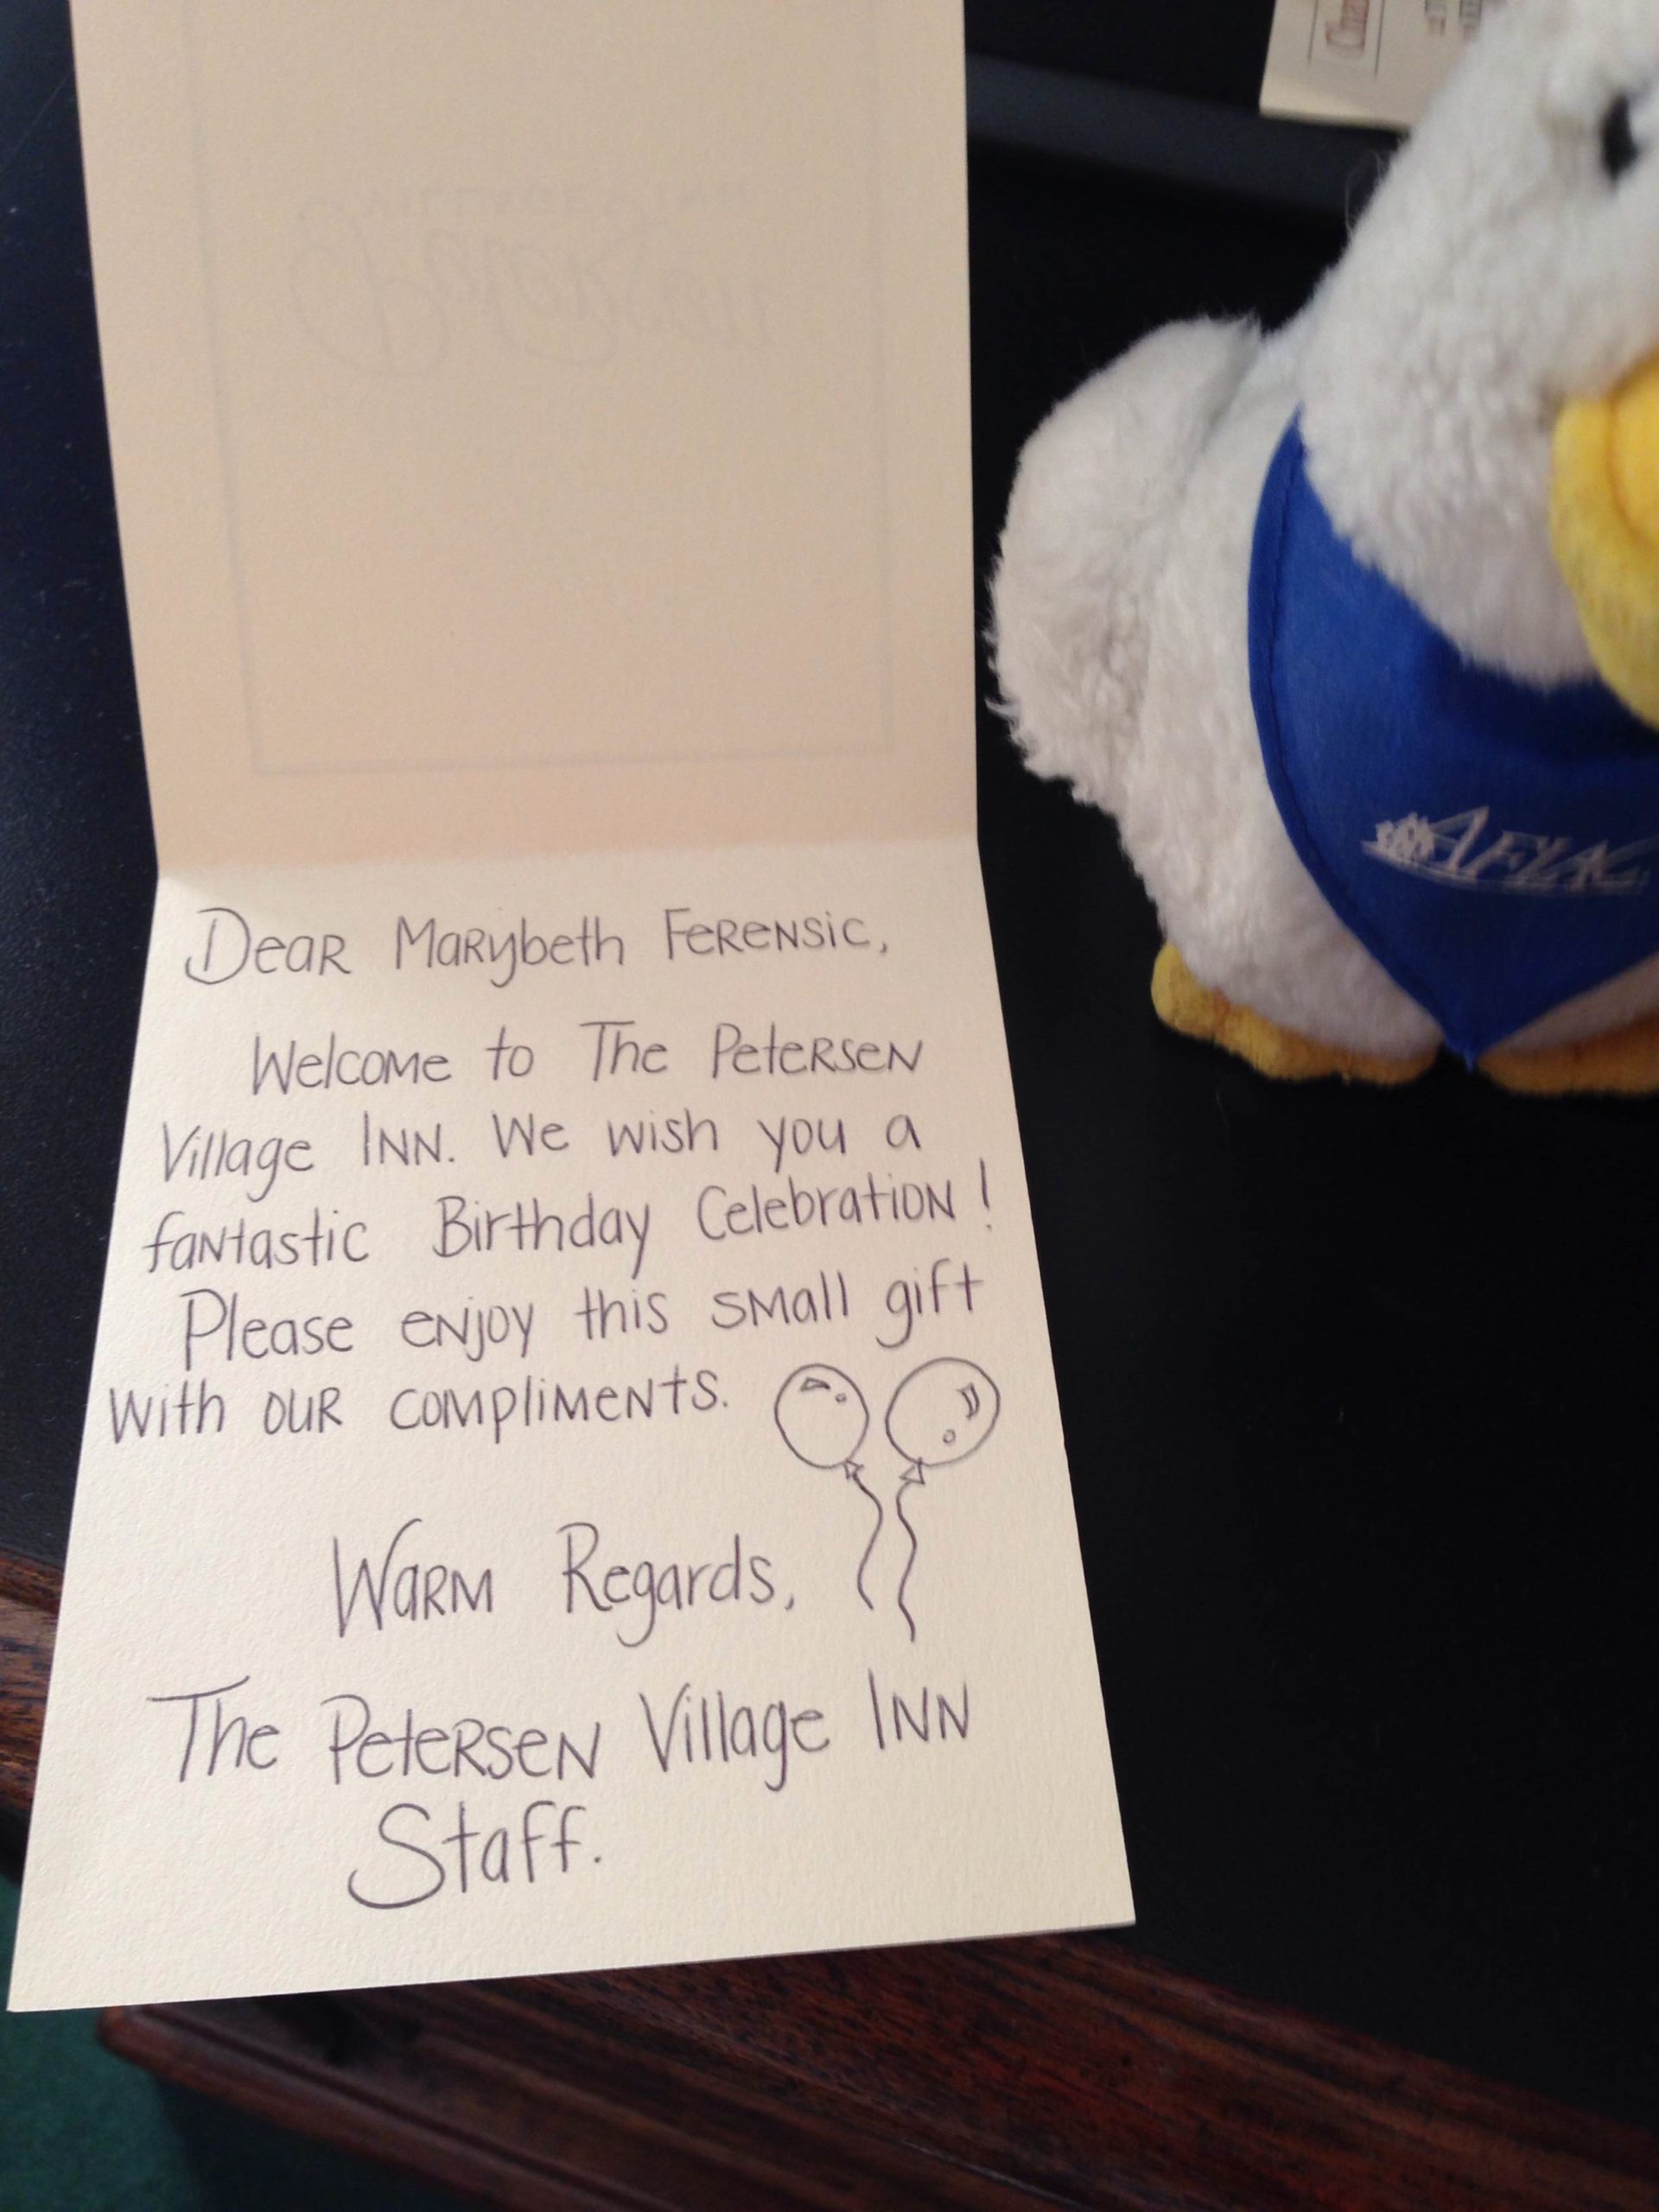 Dear Marybeth Ferensic,
Welcome to The Petersen
Village Inn. We wish you a
fantastic Birthday Celebration!
Please enjoy this small gift
with our compliments.
Warm Regards,
The Petersen Village Inn
Staff.
AFLAC